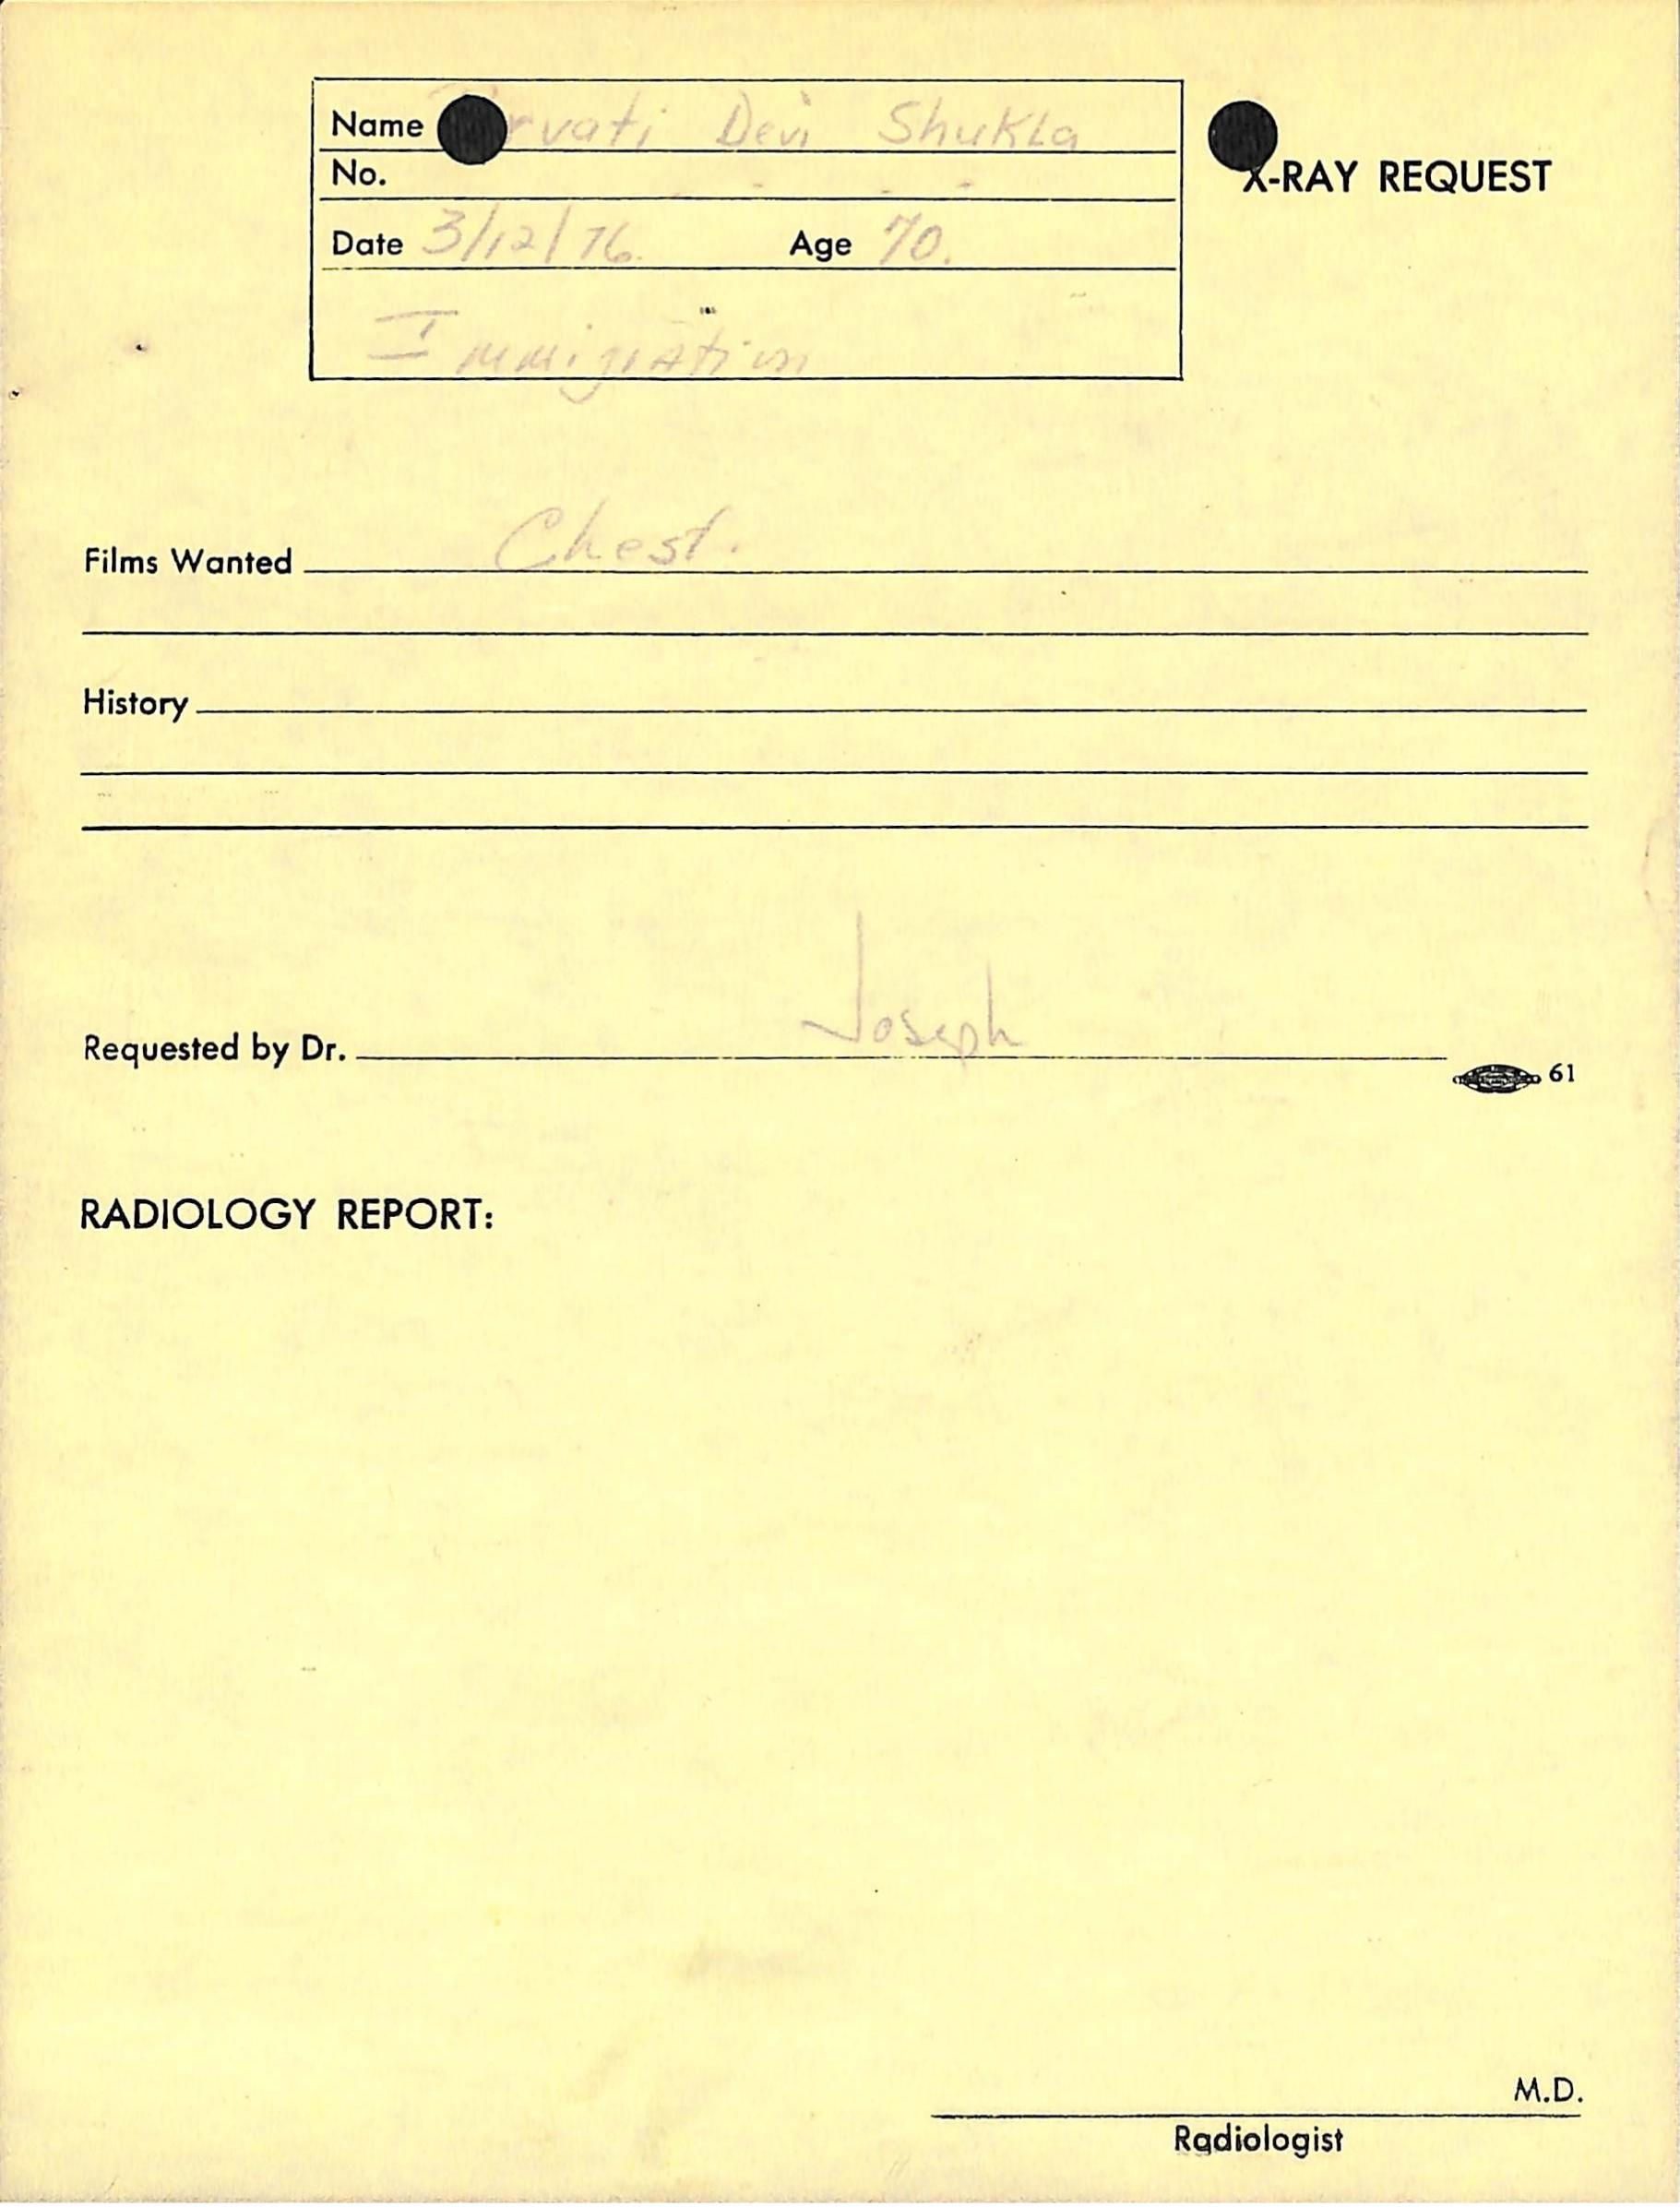 Name Parvati Devi Shukla
X-RAY REQUEST
No.
Date 3/12/76. Age 70.
Immigration
Films Wanted Chest.
History
Requested by Dr. Joseph
61
RADIOLOGY REPORT:
M.D.
Radiologist